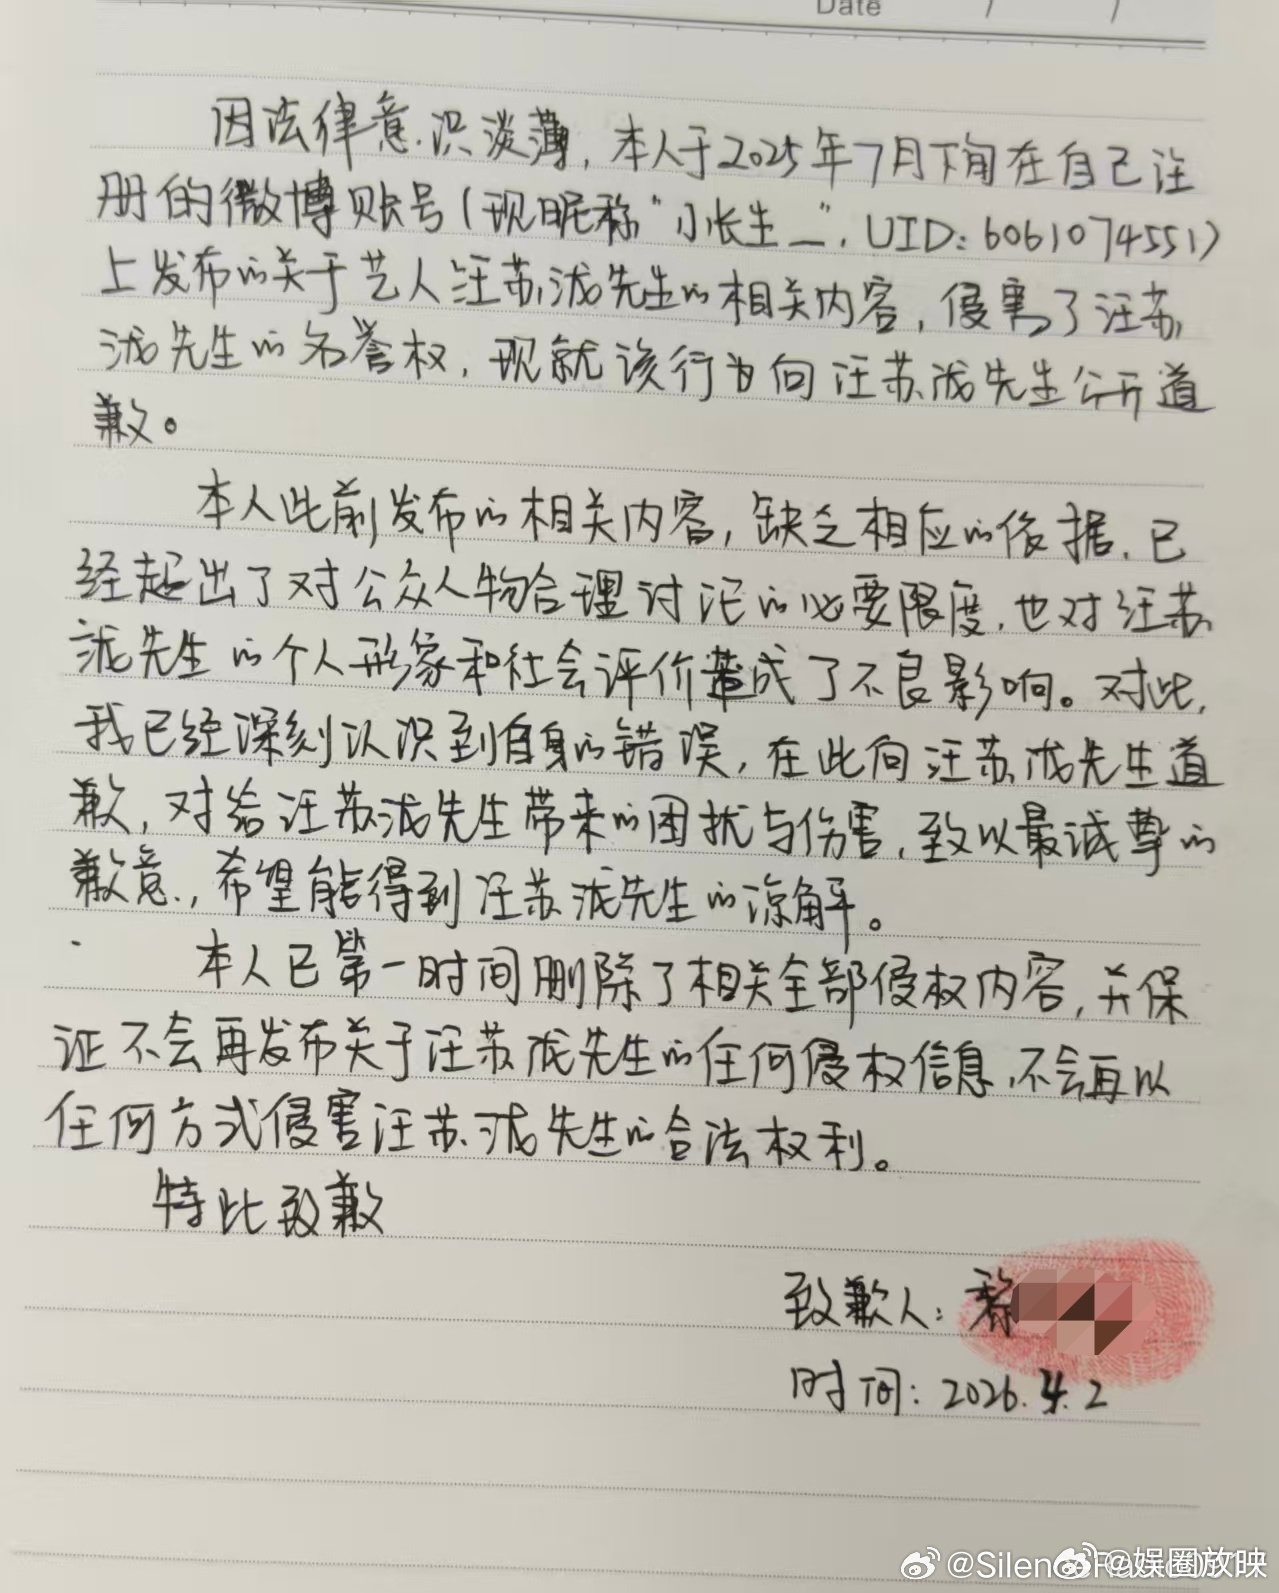 Date / /
因法律意识淡薄，本人于2025年7月下旬在自己注
册的微博账号（现昵称“小长生_”，UID：6061074551）
上发布的关于艺人汪苏泷先生的相关内容，侵害了汪苏
泷先生的名誉权，现就该行为向汪苏泷先生公开道
歉。
本人此前发布的相关内容，缺乏相应的依据，已
经超出了对公众人物合理讨论的必要限度，也对汪苏
泷先生的个人形象和社会评价造成了不良影响。对此，
我已经深刻认识到自身的错误，在此向汪苏泷先生道
歉，对给汪苏泷先生带来的困扰与伤害，致以最诚挚的
歉意，希望能得到汪苏泷先生的谅解。
本人已第一时间删除了相关全部侵权内容，并保
证不会再发布关于汪苏泷先生的任何侵权信息，不会再以
任何方式侵害汪苏泷先生的合法权利。
特此致歉
致歉人：
时间：2026.4.2
@娱圈放映